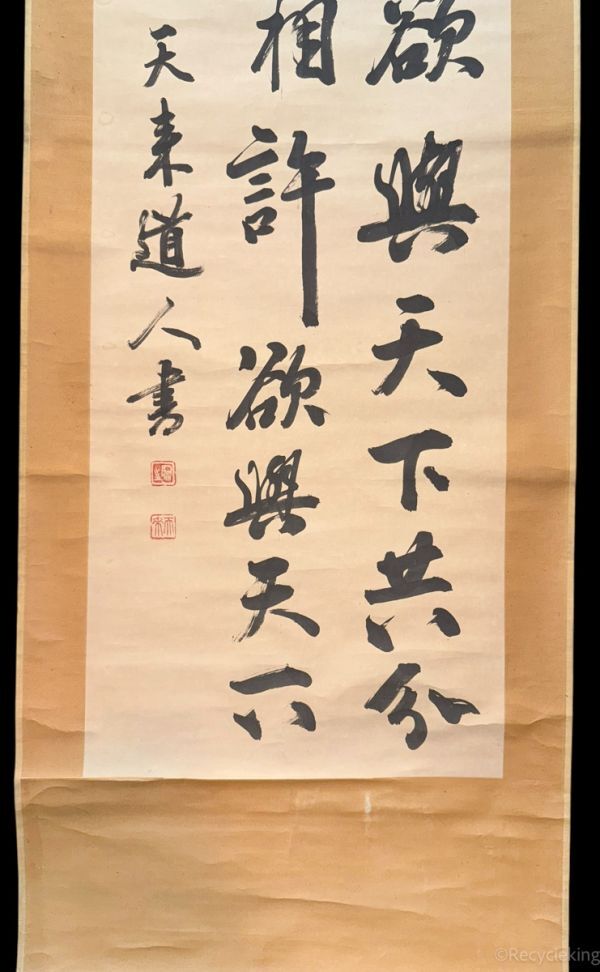 欲與天下共分
相許欲與天下
天来道人書
©Recycleking